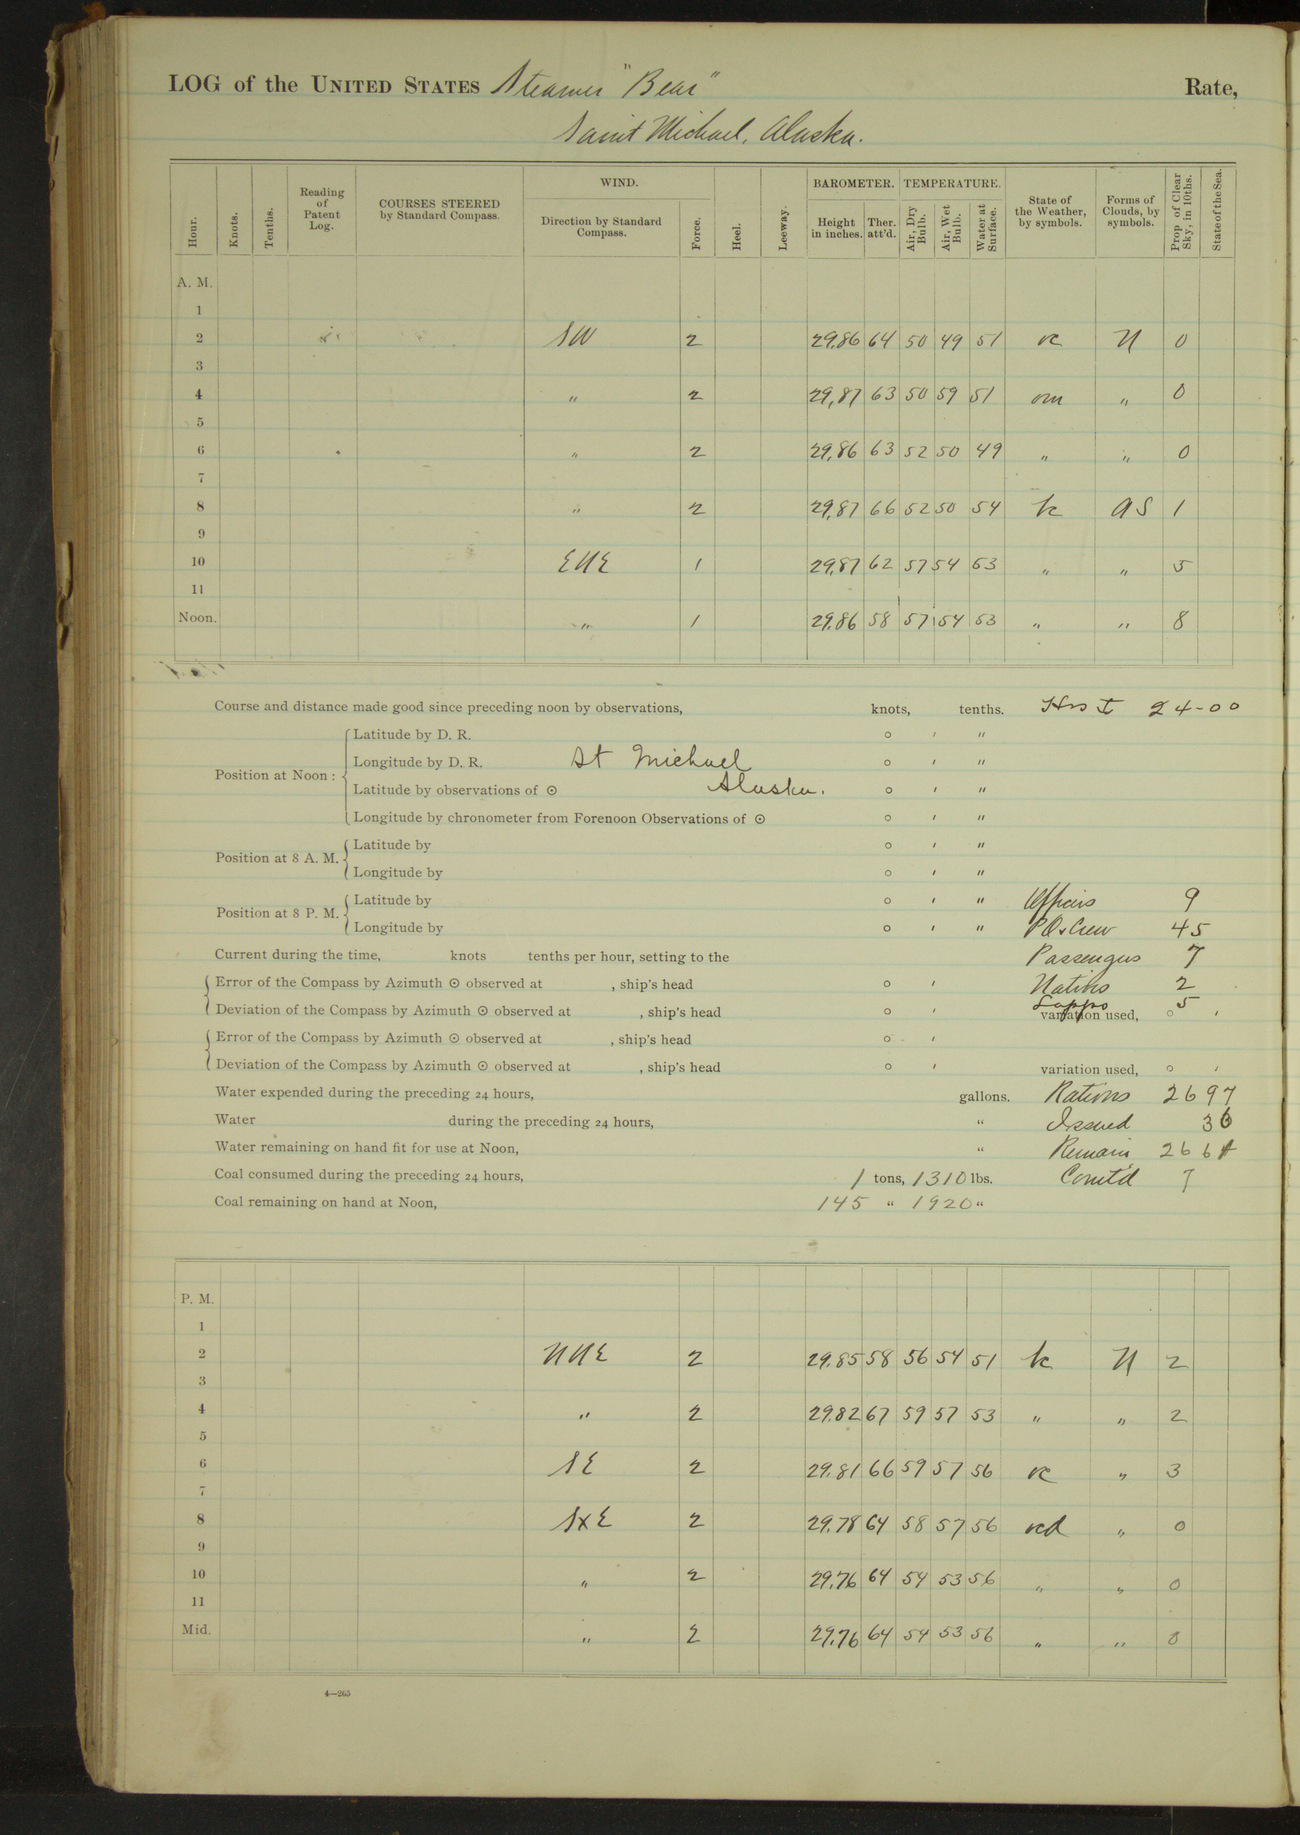 LOG of the UNITED STATES Steamer "Bear" Rate,
Saint Michael, Alaska.
Hour. Knots. Tenths. Reading of Patent Log. COURSES STEERED by Standard Compass. WIND. Direction by Standard Compass. Force. Heel. Leeway. BAROMETER. Height in inches. Ther. att'd. TEMPERATURE. Air, Dry Bulb. Air, Wet Bulb. Water at Surface. State of the Weather, by symbols. Forms of Clouds, by symbols. Prop. of Clear Sky, in 10ths. State of the Sea.
A. M.
1
2 SW 2 29.86 64 50 49 51 oc N 0
3
4 " 2 29.87 63 50 59 51 om " 0
5
6 " 2 29.86 63 52 50 49 " " 0
7
8 " 2 29.87 66 52 50 54 bc AS 1
9
10 ENE 1 29.87 62 57 54 53 " " 5
11
Noon. " 1 29.86 58 57 54 53 " " 8
Course and distance made good since preceding noon by observations, knots, tenths. 24-00
Position at Noon :
Latitude by D. R. ° ′ ″
Longitude by D. R. St Michael ° ′ ″
Latitude by observations of ⊙ Alaska. ° ′ ″
Longitude by chronometer from Forenoon Observations of ⊙ ° ′ ″
Position at 8 A. M.
Latitude by ° ′ ″
Longitude by ° ′ ″
Position at 8 P. M.
Latitude by ° ′ ″ Officers 9
Longitude by ° ′ ″ P.O. & Crew 45
Current during the time, knots tenths per hour, setting to the Passengers 7
Error of the Compass by Azimuth ⊙ observed at , ship's head ° ′ Natives 2
Lapps 5
Deviation of the Compass by Azimuth ⊙ observed at , ship's head ° ′ variation used, ° ′
Error of the Compass by Azimuth ⊙ observed at , ship's head ° ′
Deviation of the Compass by Azimuth ⊙ observed at , ship's head ° ′ variation used, ° ′
Water expended during the preceding 24 hours, gallons. Rations 2697
Water during the preceding 24 hours, " Issued 36
Water remaining on hand fit for use at Noon, " Remain 2661
Coal consumed during the preceding 24 hours, 1 tons, 1310 lbs. Comt'd 7
Coal remaining on hand at Noon, 145 " 1920 "
P. M.
1
2 NNE 2 29.85 58 56 54 51 bc N 2
3
4 " 2 29.82 67 59 57 53 " " 2
5
6 SE 2 29.81 66 59 57 56 oc " 3
7
8 SxE 2 29.78 64 58 57 56 ocd " 0
9
10 " 2 29.76 64 54 53 56 " " 0
11
Mid. " 2 29.76 64 54 53 56 " " 0
4—265